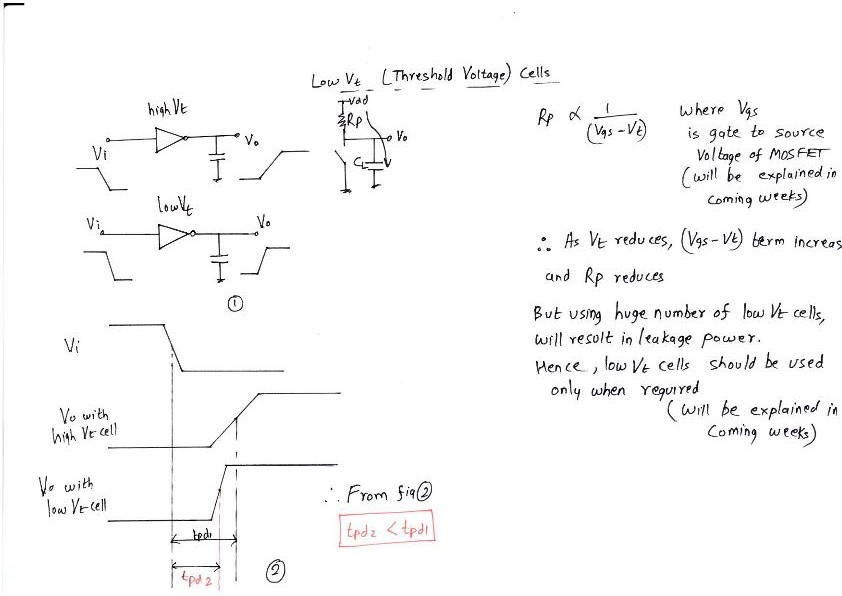 Low Vt (Threshold Voltage) Cells
high Vt
Vi
Vo
Vdd
Rp
Vo
CL
low Vt
Vi
Vo
①
Rp ∝ 1/(Vgs-Vt)
where Vgs
is gate to source
Voltage of MOSFET
(will be explained in
coming weeks)
∴ As Vt reduces, (Vgs-Vt) term increas
and Rp reduces
But using huge number of low Vt cells,
will result in leakage power.
Hence, low Vt cells should be used
only when required
(will be explained in
coming weeks)
Vi
Vo with
high Vt cell
Vo with
low Vt cell
tpd1
tpd2
②
∴ From fig ②
tpd2 < tpd1